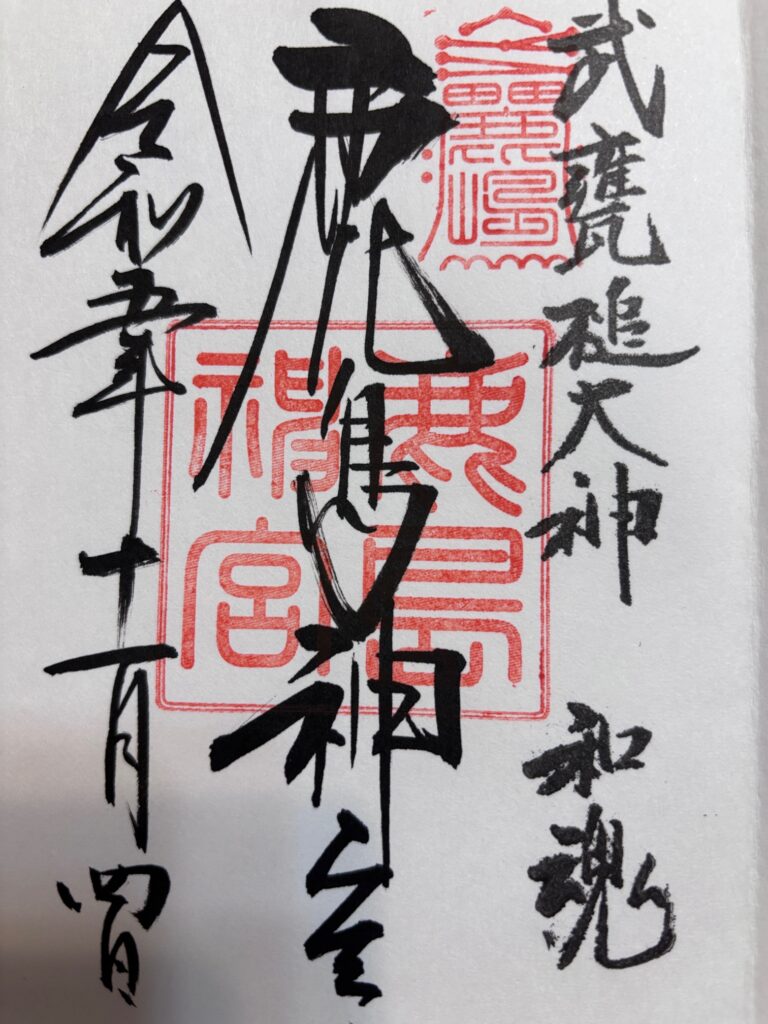 武甕槌大神　和魂
鹿島神宮
鹿島神宮
令和五年十一月四日